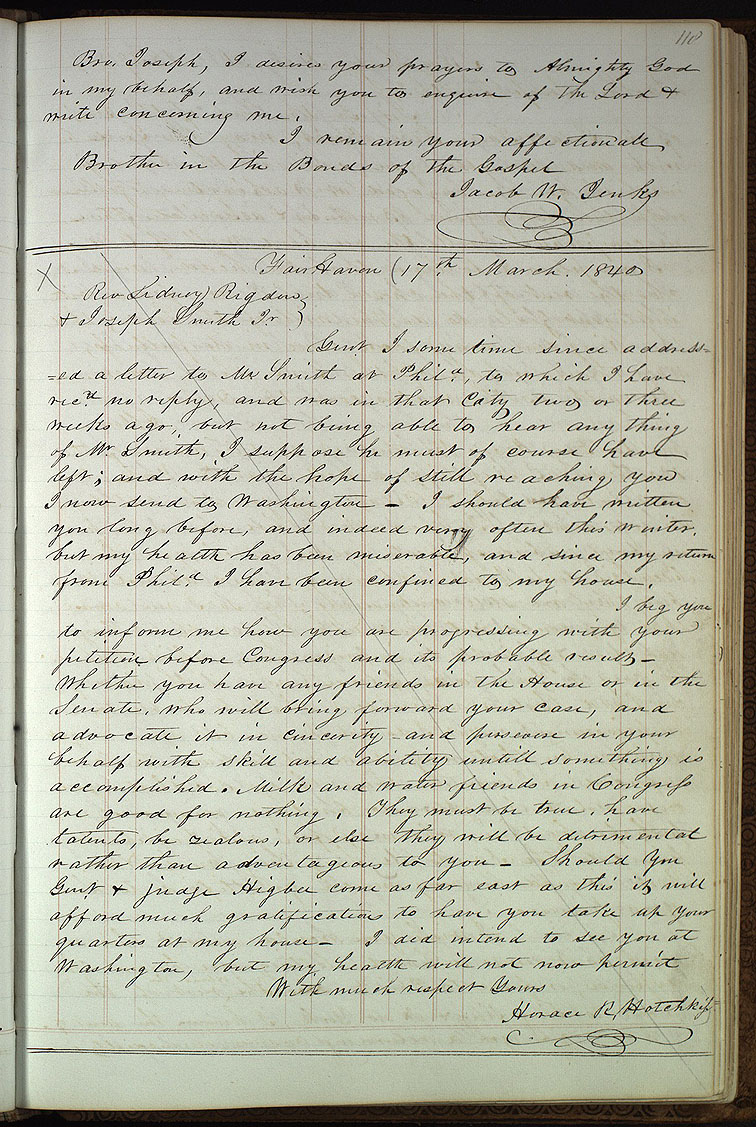 110
Bro, Joseph, I desires your prayers to Almighty God
in my behalf, and wish you to enquire of the Lord &
write concerning me.
I remain your affectionate
Brother in the Bonds of the Gospel
Jacob W. Jenks
X
Fair Haven (17th March. 1840
Rev Sidney Rigdon }
& Joseph Smith Jr }
Gent I some time since address=
=ed a letter to Mr Smith at Phila, to which I have
recd no reply, and was in that City two or three
weeks ago, but not being able to hear any thing
of Mr Smith, I suppose he must of course have
left; and with the hope of still reaching you
I now send to Washington - I should have written
you long before, and indeed very often this winter,
but my health has been miserable, and since my return
from Phila I have been confined to my house.
I beg you
to inform me how you are progressing with your
petition before Congress and its probable result -
Whether you have any friends in the House or in the
Senate, who will bring forward your case, and
advocate it in cincerity - and persevere in your
behalf with skill and ability untill something is
accomplished. Milk and water friends in Congress
are good for nothing. They must be true, have
talents, be zealous, or else they will be detrimental
rather than adventageous to you - Should You
Gent & Judge Higbee come as far east as this it will
afford much gratification to have you take up your
quarters at my house - I did intend to see you at
Washington, but my health will not now permit
With much respect Yours
Horace R. Hotchkiss